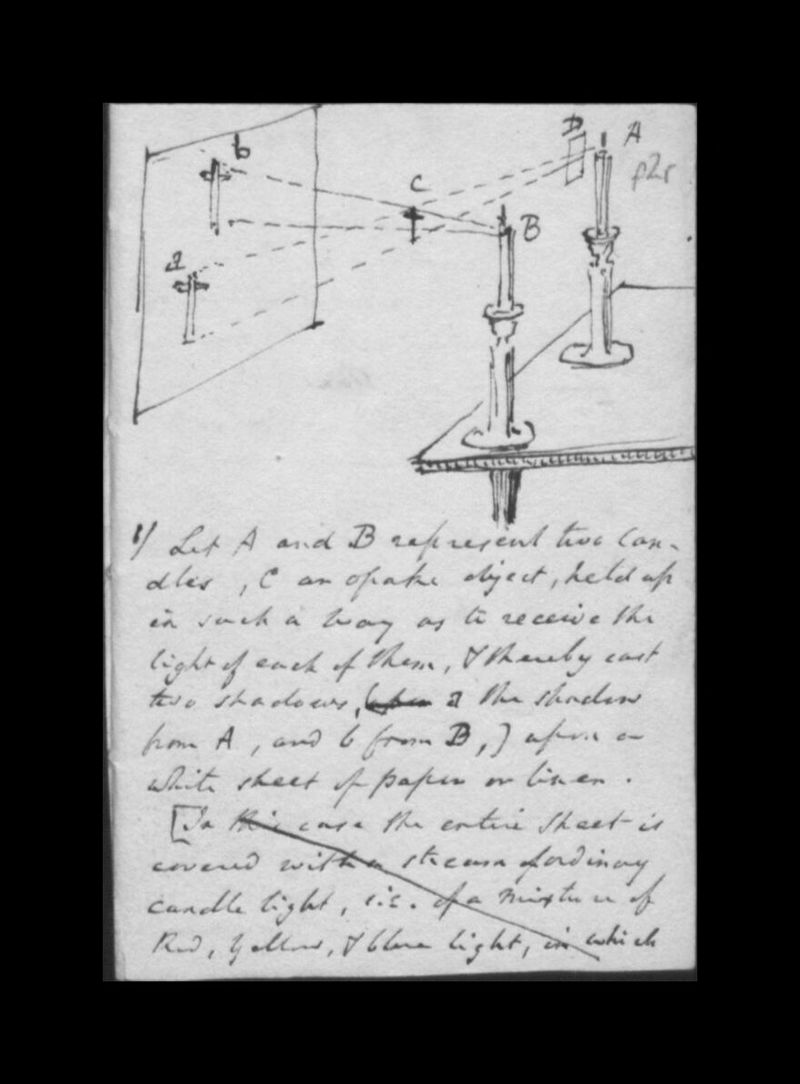 D
A
f2r
b
C
B
a
1/ Let A and B represent two Can-
dles , C an opake object, held up
in such a way as to receive the
light of each of them, & thereby cast
two shadows, ( a the shadow
from A , and b from B, ) upon a
white sheet of paper or linen .
[In this case the entire sheet is
covered with a stream of ordinary
candle light, i.e. of a mixture of
Red, Yellow, & blue light, in which